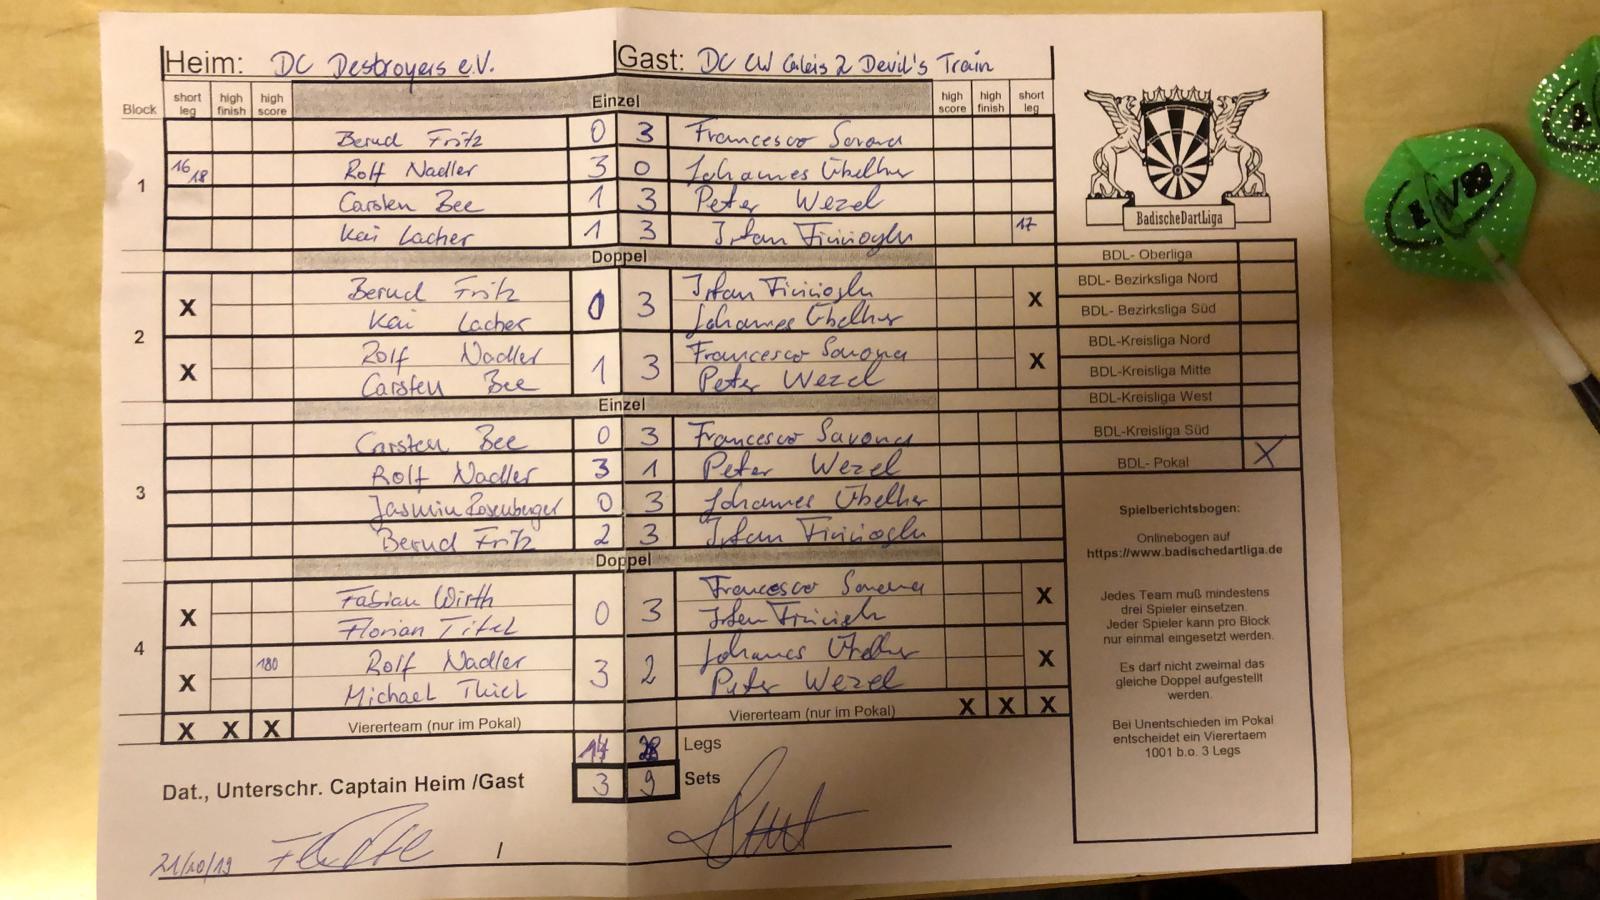 Heim: DC Destroyers e.V. Gast: DC CW Devil's Train
Block short leg high finish high score Einzel high score high finish short leg
1
Bernd Fritz 0 3 Francesco Savona
16/18 Rolf Nadler 3 0 Johannes Übelher
Carsten Bee 1 3 Peter Wezel
Kai Lacher 1 3 17
Doppel
2
X Bernd Fritz 3 X
Kai Lacher Johannes Übelher
X Rolf Nadler 1 3 Francesco Savona X
Carsten Bee Peter Wezel
Einzel
3
Carsten Bee 0 3 Francesco Savona
Rolf Nadler 3 1 Peter Wezel
Jasmin Rosenberger 0 3 Johannes Übelher
Bernd Fritz 2 3
Doppel
4
X Fabian Wirth 0 3 Francesco Savona X
Florian
X 180 Rolf Nadler 3 2 Johannes Übelher X
Michael Thiel Peter Wezel
X X X Vierерteam (nur im Pokal) Viererteam (nur im Pokal) X X X
14 28 Legs
3 9 Sets
Dat., Unterschr. Captain Heim /Gast
21/10/19 /
BadischeDartLiga
BDL- Oberliga
BDL- Bezirksliga Nord
BDL- Bezirksliga Süd
BDL-Kreisliga Nord
BDL-Kreisliga Mitte
BDL-Kreisliga West
BDL-Kreisliga Süd
BDL- Pokal X
Spielberichtsbogen:
Onlinebogen auf
https://www.badischedartliga.de
Jedes Team muß mindestens
drei Spieler einsetzen.
Jeder Spieler kann pro Block
nur einmal eingesetzt werden.
Es darf nicht zweimal das
gleiche Doppel aufgestellt
werden.
Bei Unentschieden im Pokal
entscheidet ein Vierertaem
1001 b.o. 3 Legs